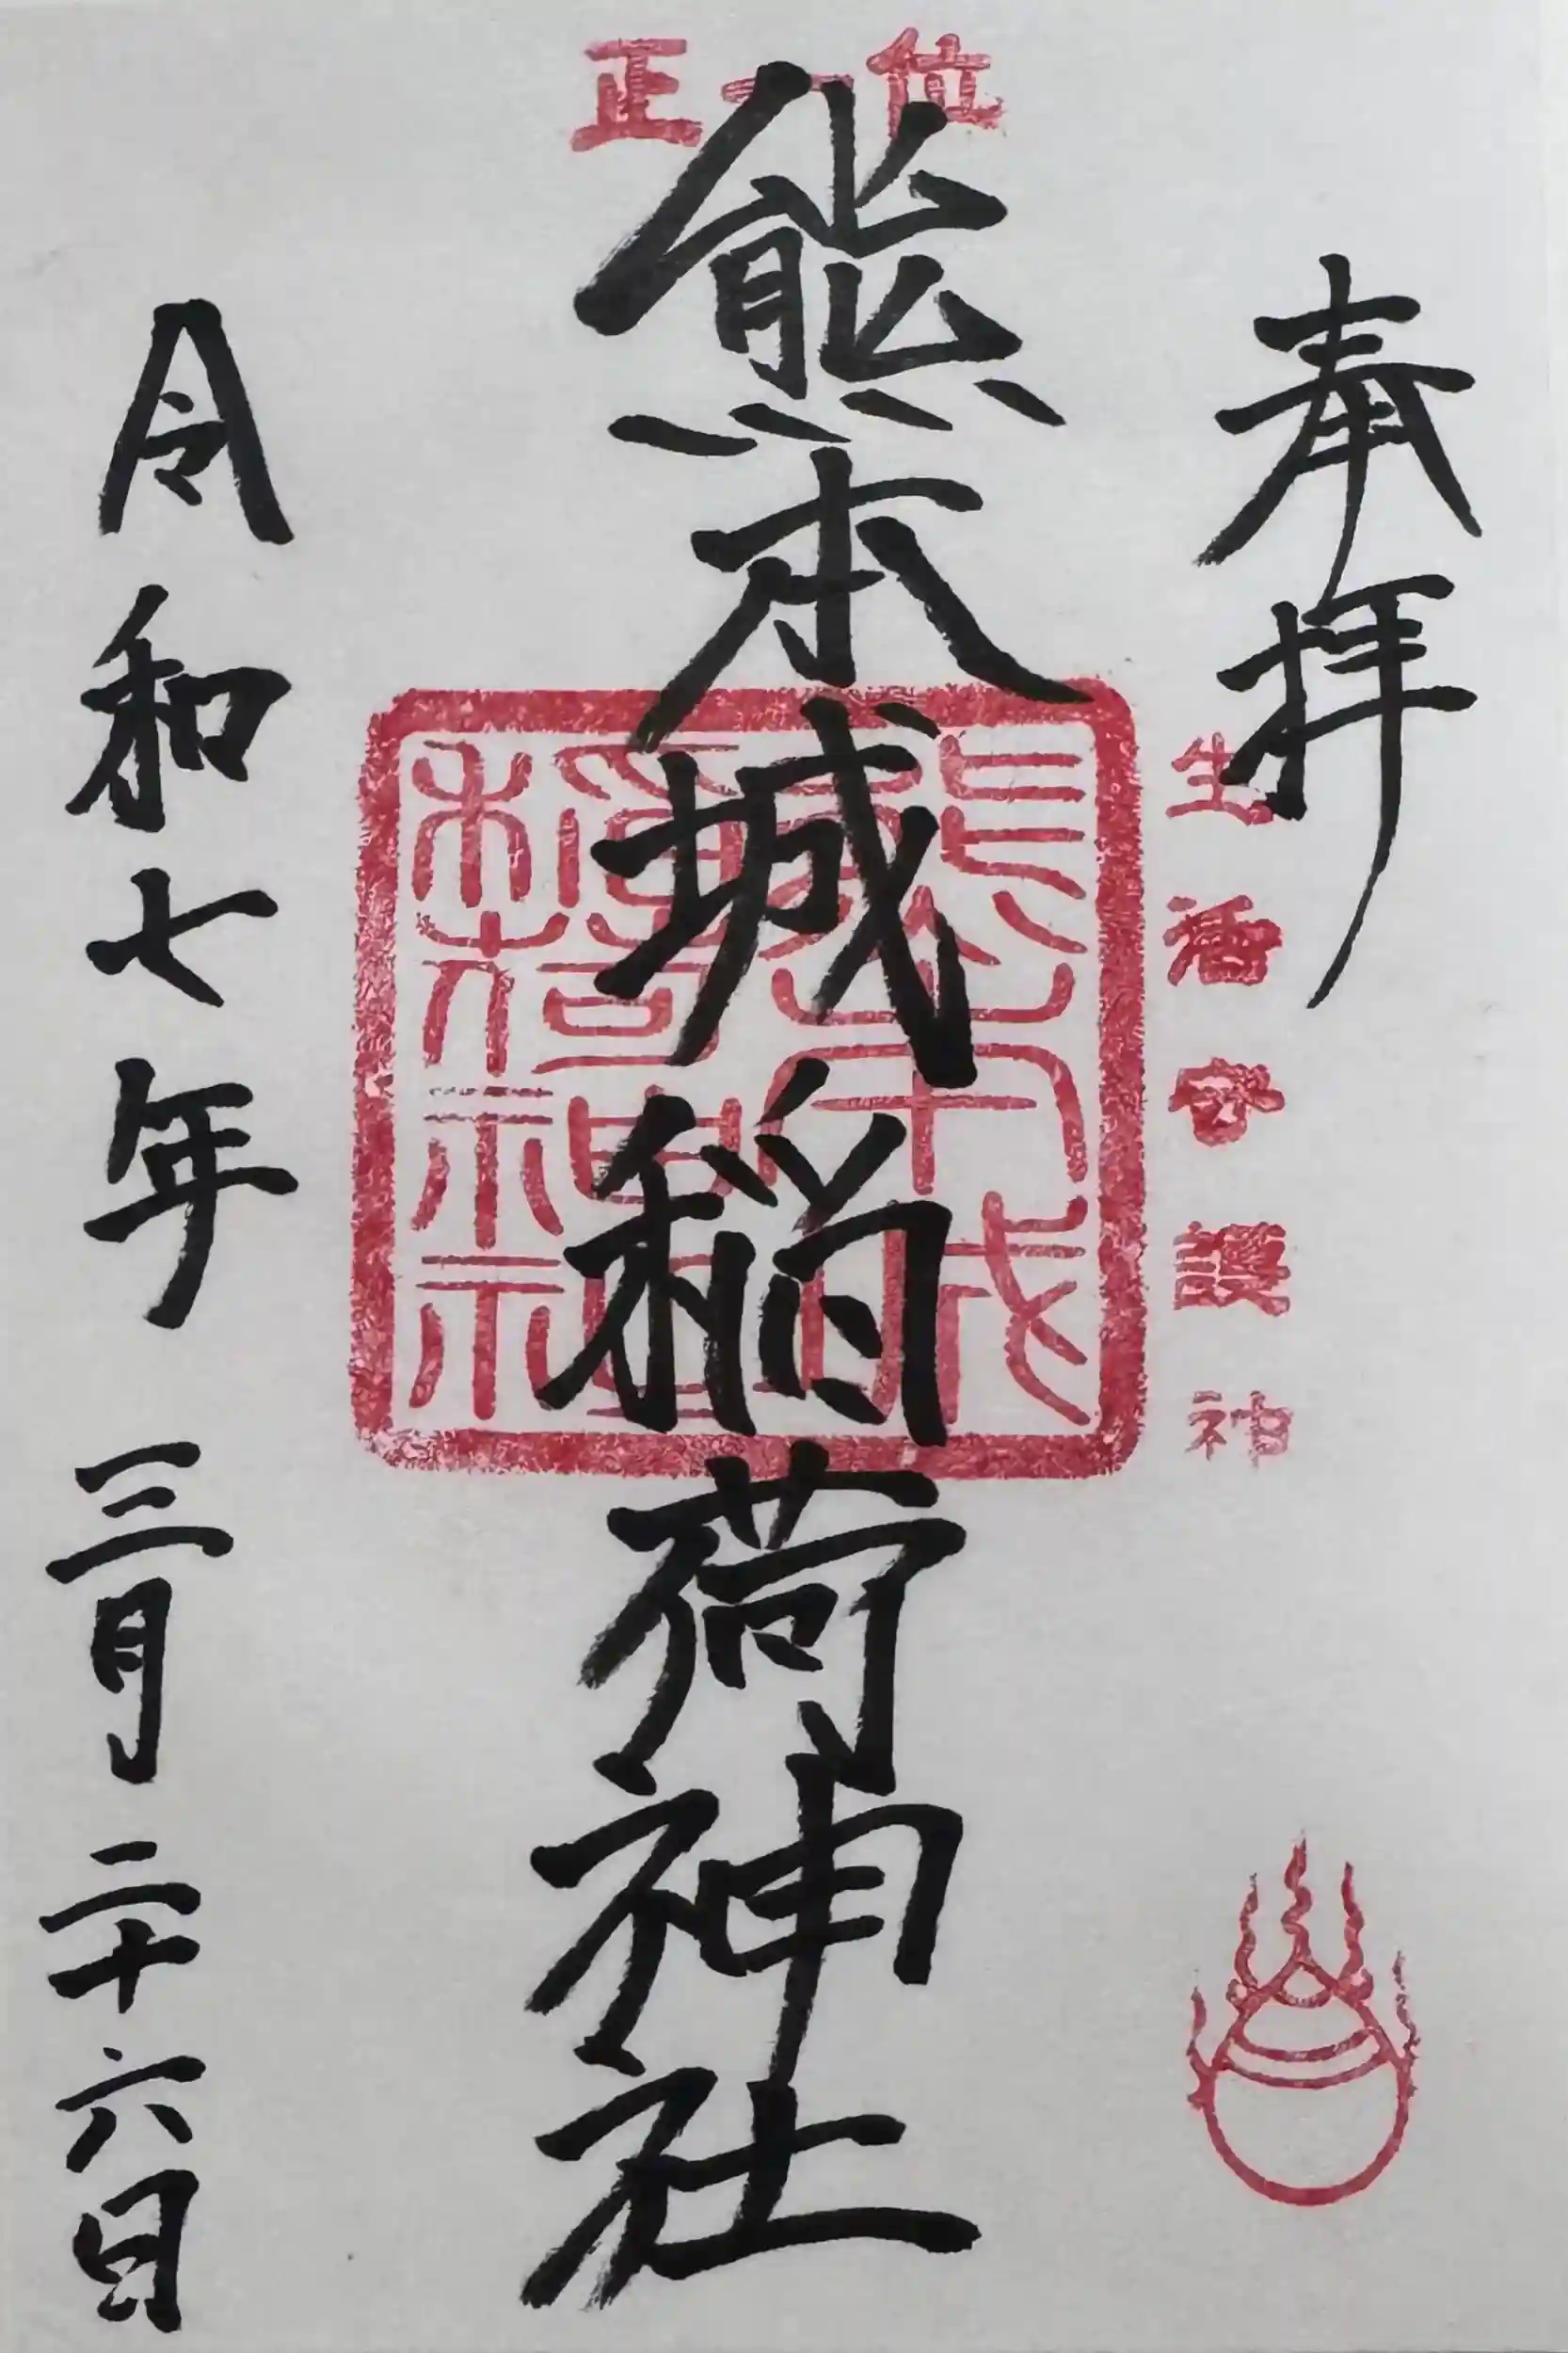 正一位
奉拝
生活守護神
熊本城稲荷神社
令和七年 三月二十六日